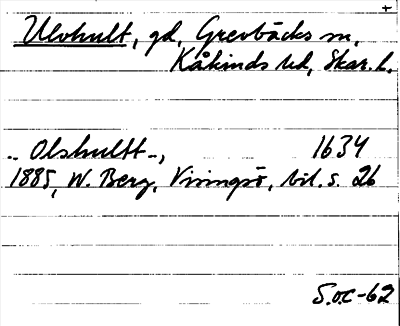 Ulvhult, gd, Grevbäcks sn,
Kåkinds hd, Skar. l.
.. Olshultt.., 1634
1885, W. Berg, Visingsö, bil. s. 26
S.O.C-62